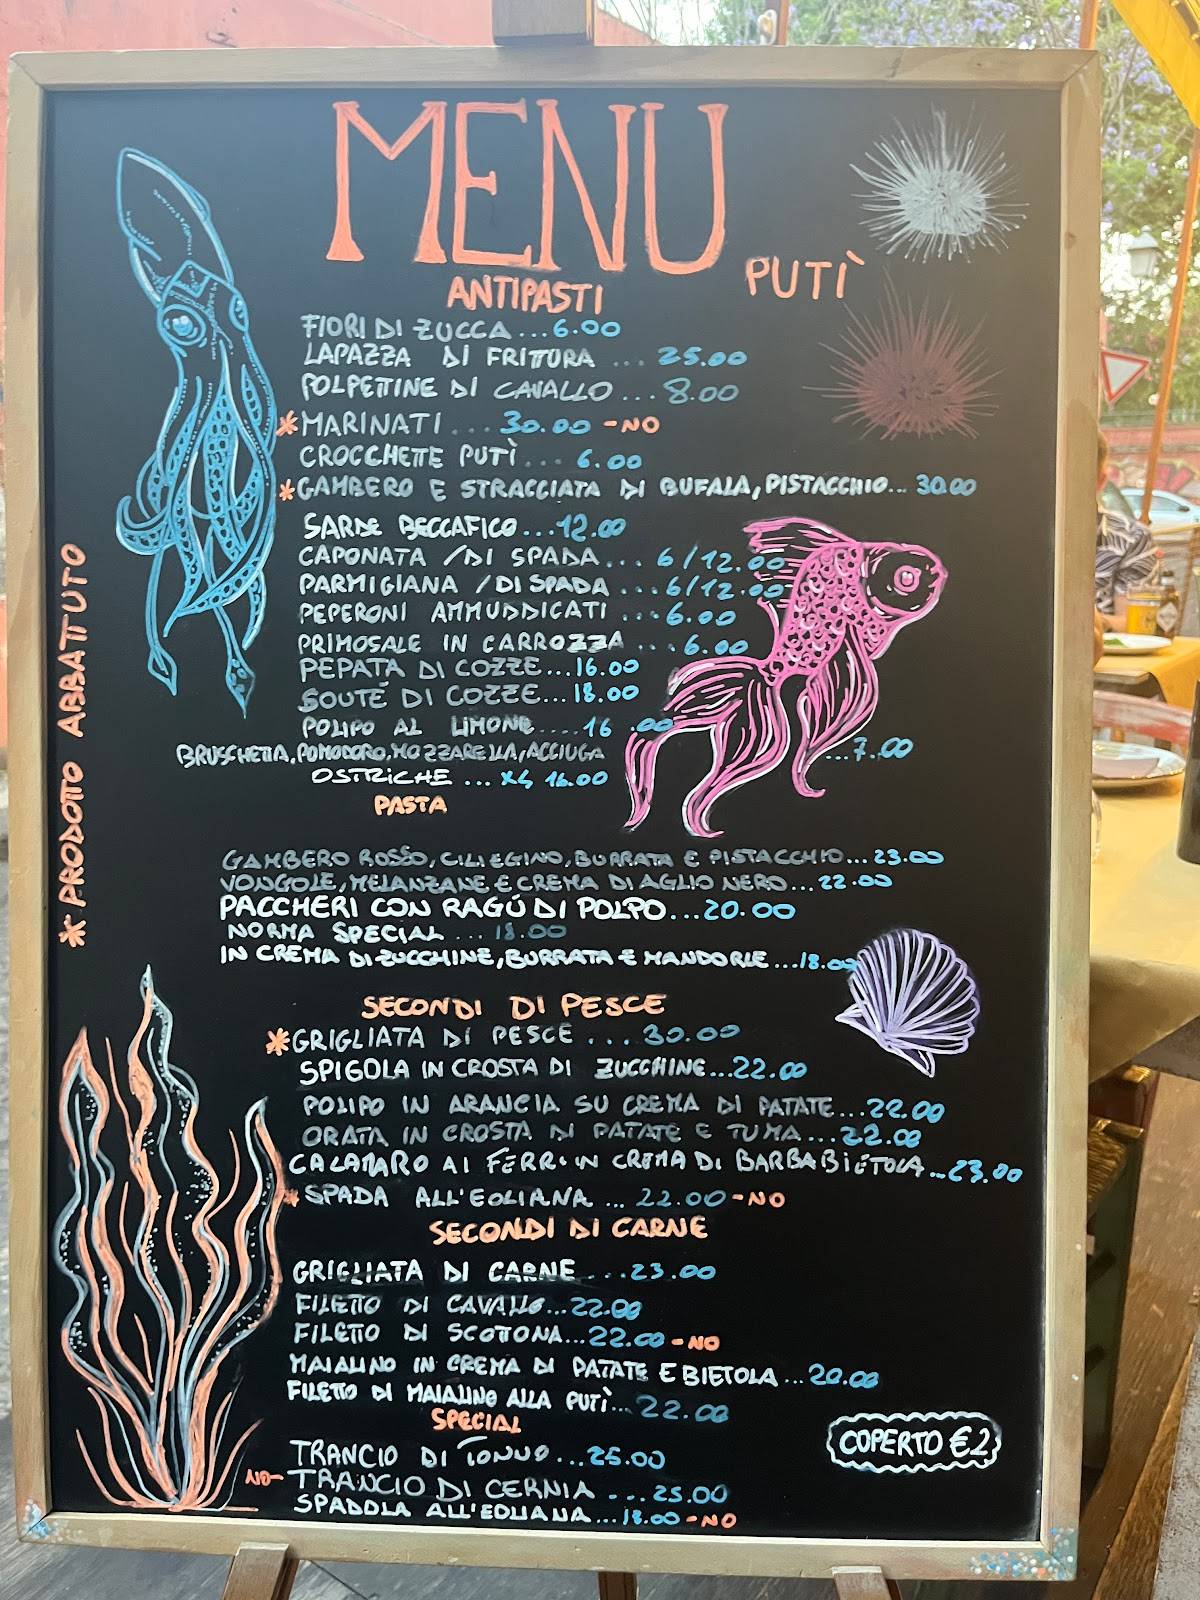 MENU
PUTÌ
ANTIPASTI
FIORI DI ZUCCA...6.00
LAPAZZA DI FRITTURA ... 25.00
POLPETTINE DI CAVALLO ... 8.00
*MARINATI ... 30.00 -NO
CROCCHETTE PUTÌ ... 6.00
*GAMBERO E STRACCIATA DI BUFALA, PISTACCHIO... 30.00
SARDE BECCAFICO ...12.00
CAPONATA /DI SPADA ... 6/12.00
PARMIGIANA /DI SPADA ...6/12.00
PEPERONI AMMUDDICATI ...6.00
PRIMOSALE IN CARROZZA ...6.00
PEPATA DI COZZE...16.00
SOUTÉ DI COZZE...18.00
POLIPO AL LIMONE....16.00
BRUSCHETTA, POMODORO, MOZZARELLA, ACCIUGA ...7.00
OSTRICHE ... X4 16.00
PASTA
GAMBERO ROSSO, CILIEGINO, BURRATA E PISTACCHIO...23.00
VONGOLE, MELANZANE, E CREMA DI AGLIO NERO...22.00
PACCHERI CON RAGÚ DI POLPO...20.00
NORMA SPECIAL ... 18.00
IN CREMA DI ZUCCHINE, BURRATA E MANDORLE ...18.00
SECONDI DI PESCE
*GRIGLIATA DI PESCE ... 30.00
SPIGOLA IN CROSTA DI ZUCCHINE...22.00
POLIPO IN ARANCIA SU CREMA DI PATATE...22.00
ORATA IN CROSTA DI PATATE E TUMA...22.00
CALAMARO AI FERRI IN CREMA DI BARBABIETOLA...23.00
*SPADA ALL'EOLIANA ... 22.00 -NO
SECONDI DI CARNE
GRIGLIATA DI CARNE ...23.00
FILETTO DI CAVALLO...22.00
FILETTO DI SCOTTONA...22.00 -NO
MAIALINO IN CREMA DI PATATE E BIETOLA ...20.00
FILETTO DI MAIALINO ALLA PUTÌ... 22.00
SPECIAL
TRANCIO DI TONNO ...25.00
NO- TRANCIO DI CERNIA ...25.00
SPADOLA ALL'EOLIANA ...18.00 -NO
COPERTO €2
* PRODOTTO ABBATTUTO